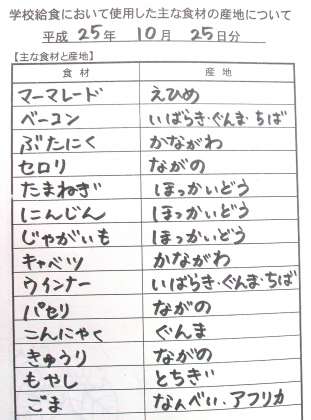 学校給食において使用した主な食材の産地について
平成 25年 10月 25日分
【主な食材と産地】
食材 産地
マーマレード えひめ
ベーコン いばらき・ぐんま・ちば
ぶたにく かながわ
セロリ ながの
たまねぎ ほっかいどう
にんじん ほっかいどう
じゃがいも ほっかいどう
キャベツ かながわ
ウインナー いばらき・ぐんま・ちば
パセリ ながの
こんにゃく ぐんま
きゅうり ながの
もやし とちぎ
ごま なんべい・アフリカ